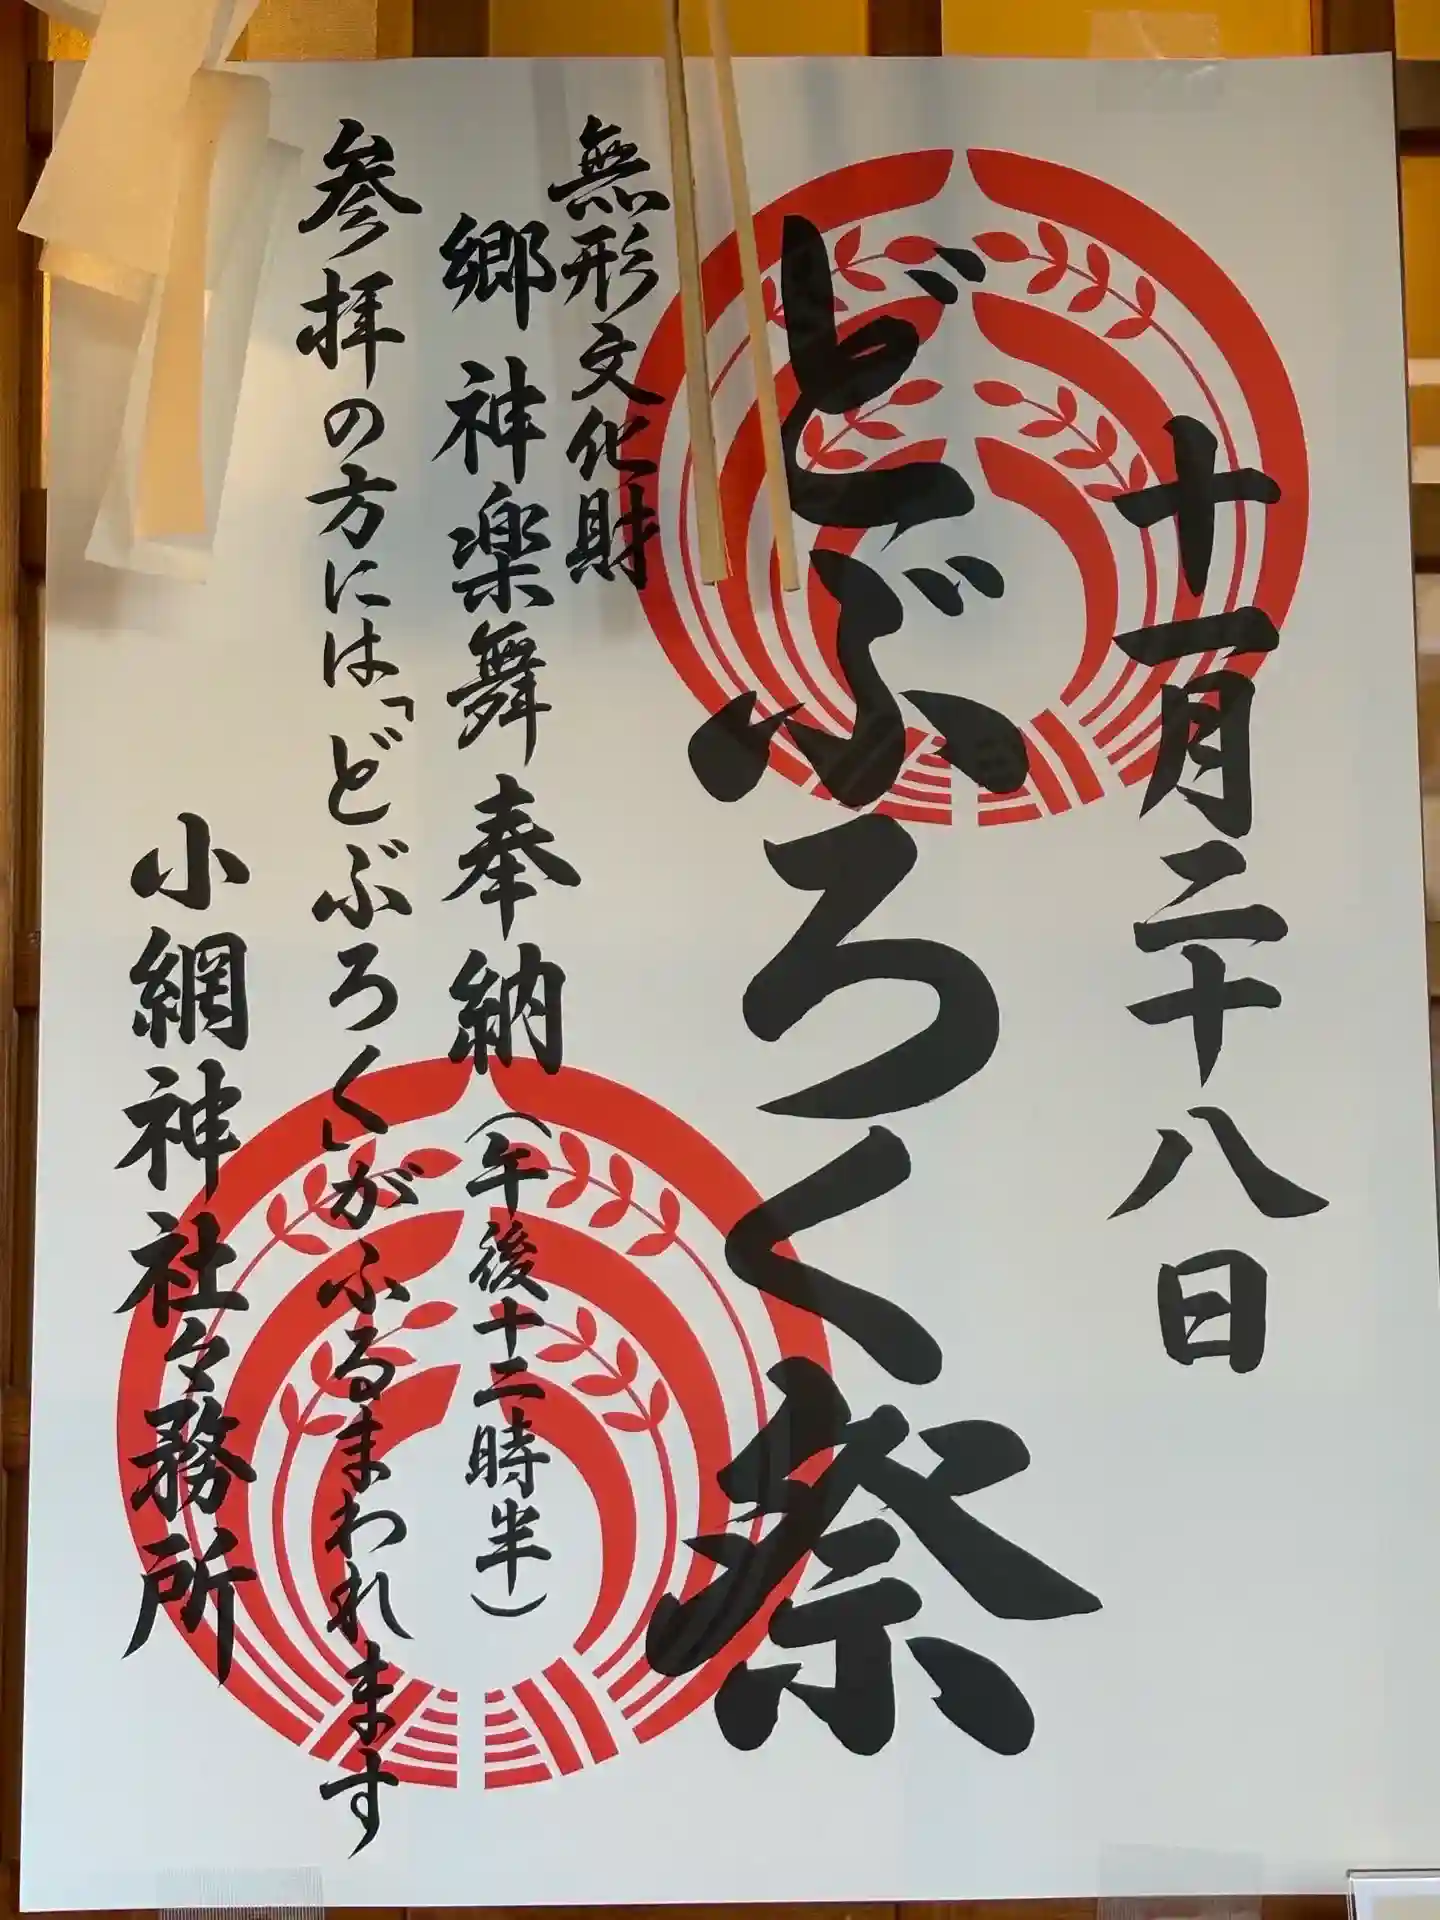 十一月二十八日
どぶろく祭
無形文化財
郷神楽舞奉納（午後十二時半）
参拝の方には「どぶろく」がふるまわれます
小網神社々務所